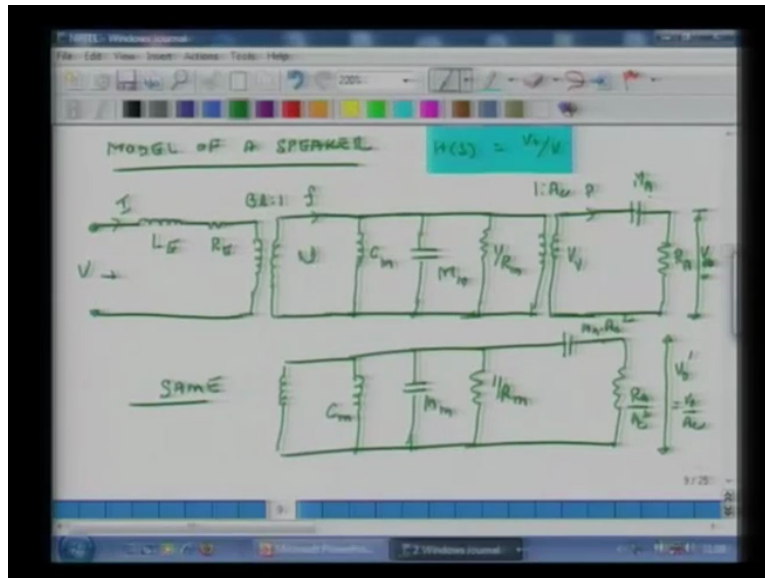 NPTEL - Windows Journal
File Edit View Insert Actions Tools Help
200%
MODEL OF A SPEAKER
H(S) = V0/V
I
LE
RE
V →
Bl:1
f
U
Cm
Mm
1/Rm
1:Ac
P
VV
MA
RA
SAME
Cm
Mm
1/Rm
MA.Ac²
RA/Ac²
V0' = V0/Ac
9/25
9
2 Windows Journal